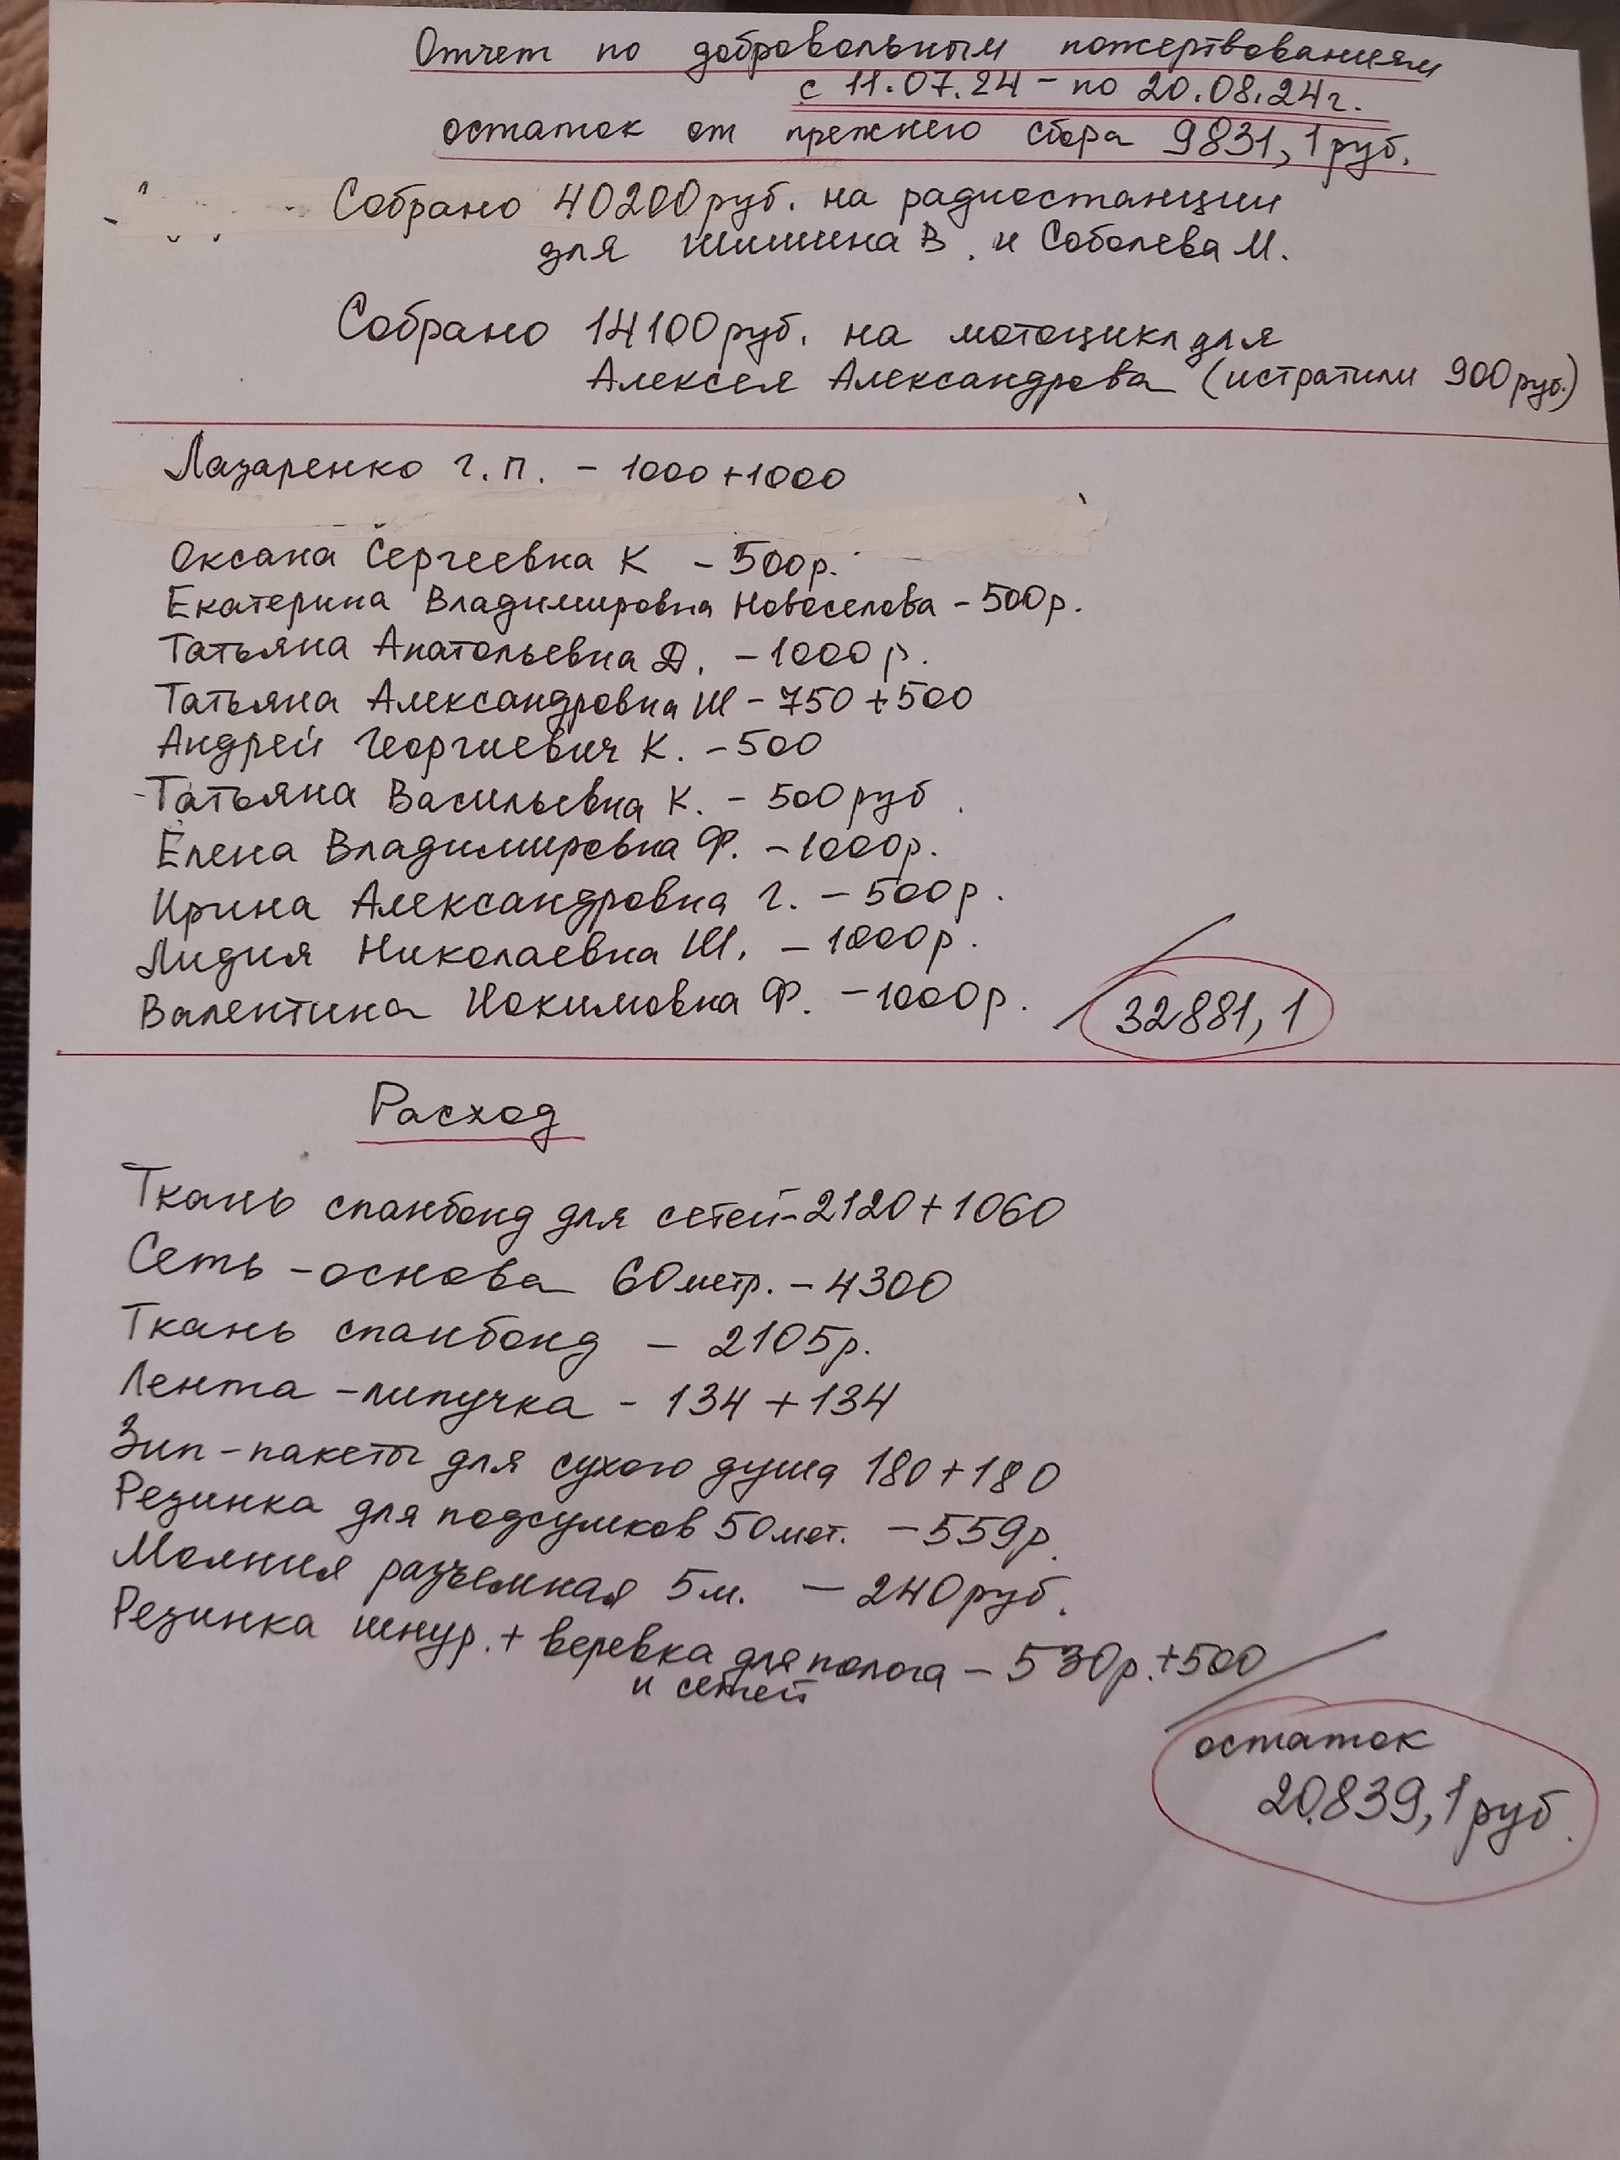 Отчет по добровольным пожертвованиям
с 11.07.24 - по 20.08.24г.
остаток от прежнего сбора 9831,1 руб.
Собрано 40200 руб. на радиостанции
для Шишина В. и Соболева М.
Собрано 14100 руб. на мотоцикл для
Алексея Александрова (истратили 900 руб.)
Лазаренко Г.П. - 1000 + 1000
Оксана Сергеевна К - 500р.
Екатерина Владимировна Новоселова - 500р.
Татьяна Анатольевна Д. - 1000р.
Татьяна Александровна Ш - 750 + 500
Андрей Георгиевич К. - 500
Татьяна Васильевна К. - 500 руб.
Елена Владимировна Ф. - 1000р.
Ирина Александровна Г. - 500р.
Лидия Николаевна Ш. - 1000р.
Валентина Иокимовна Ф. - 1000р.
32881,1
Расход
Ткань спанбонд для сетей - 2120 + 1060
Сеть - основа 60 метр. - 4300
Ткань спанбонд - 2105р.
Лента - липучка - 134 + 134
Зип - пакеты для сухого душа 180 + 180
Резинка для подсумков 50 мет. - 559р.
Молния разъемная 5 м. - 240 руб.
Резинка шнур. + веревка для полога - 530р. + 500
и сетей
остаток
20.839,1 руб.